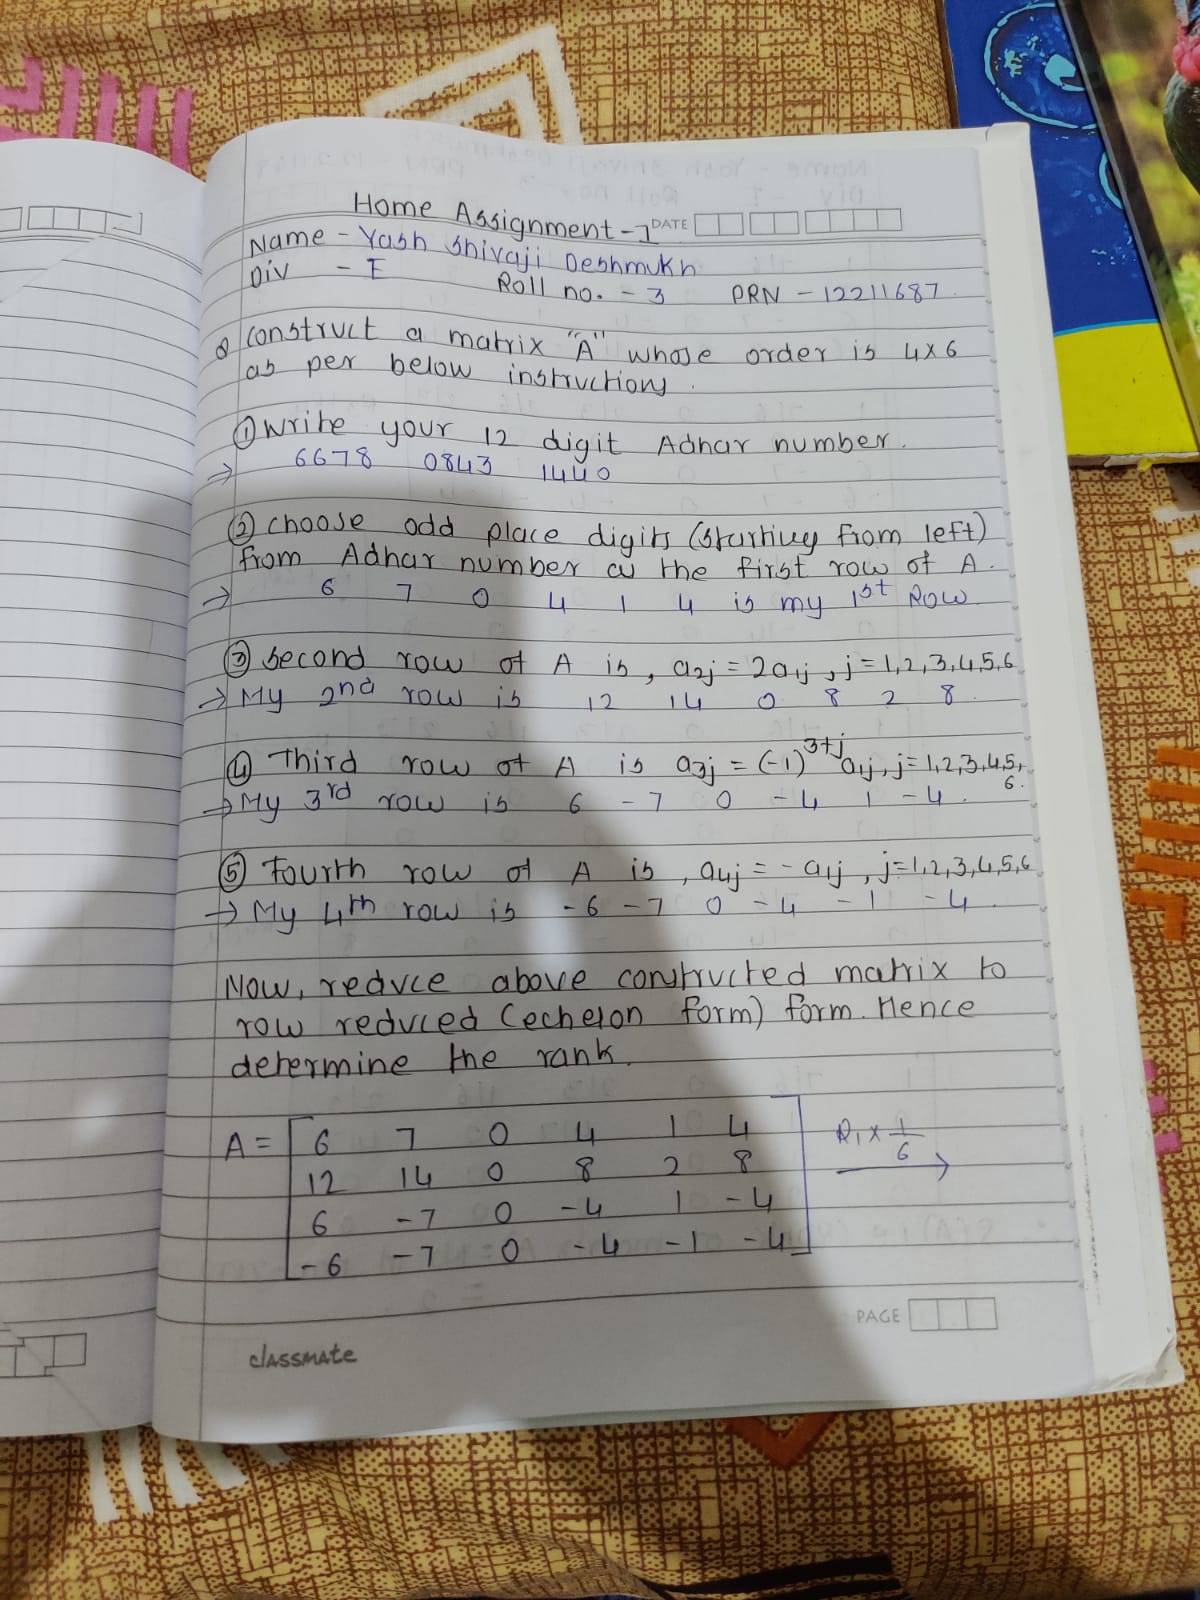 Home Assignment - 1
DATE
Name - Yash Shivaji Deshmukh
Div - E Roll no. - 3 PRN - 12211687
Q Construct a matrix "A" whose order is 4x6
as per below instructions.
① Write your 12 digit Adhar number.
→ 6678 0843 1440
② choose odd place digits (starting from left)
from Adhar number as the first row of A.
→ 6 7 0 4 1 4 is my 1st Row
③ Second row of A is, a2j = 2a1j, j = 1,2,3,4,5,6
→ My 2nd row is 12 14 0 8 2 8.
④ Third row of A is a3j = (-1)^3+j a1j, j = 1,2,3,4,5,
6.
→ My 3rd row is 6 -7 0 -4 1 -4.
⑤ Fourth row of A is, a4j = - a1j, j=1,2,3,4,5,6
→ My 4th row is -6 -7 0 -4 -1 -4.
Now, reduce above constructed matrix to
row reduced (echelon form) form. Hence
determine the rank.
A = [ 6 7 0 4 1 4 ] R1 x 1/6 →
12 14 0 8 2 8
6 -7 0 -4 1 -4
-6 -7 0 -4 -1 -4
PAGE
classmate